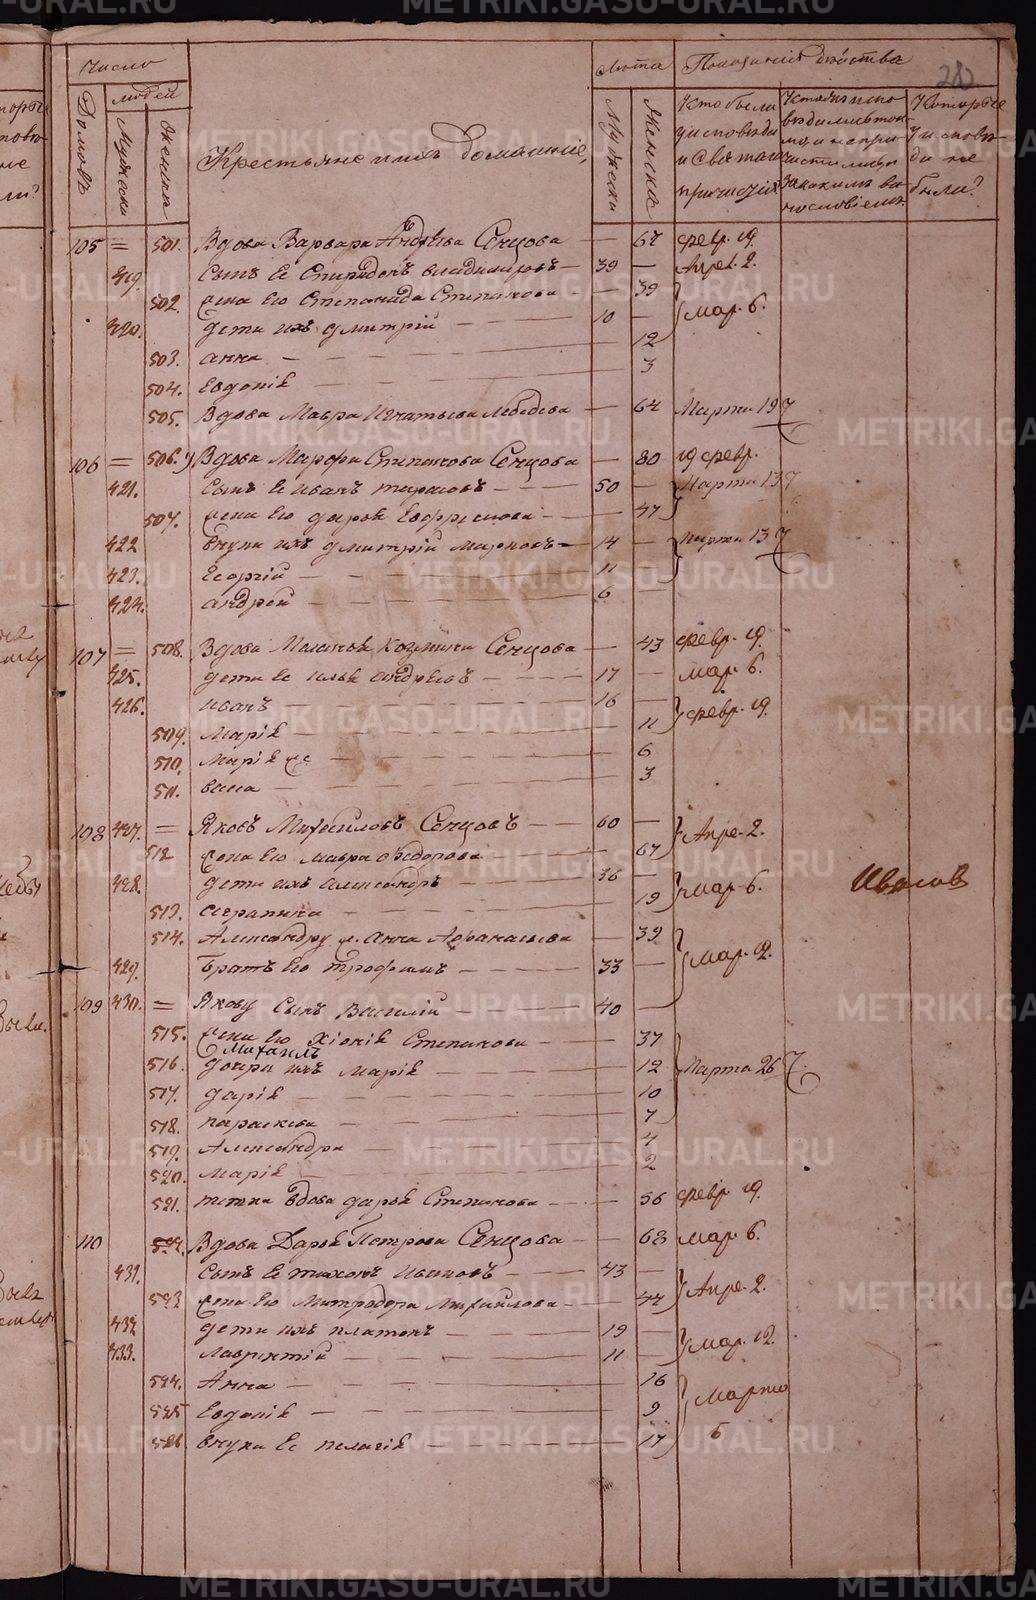 Число
Лѣта
Показаніе дѣйства
282
Домовъ
людей
Мужеска
Женска
Крестьяне и ихъ домашніе,
Мужеска
Женска
Кто были
у исповѣди
и Свѣтаго
причастія
Которые
у исповѣ-
ди не
были?
105 = 501. Вдова Варвара Андрѣева Сенцова — 67 февр. 19.
419 Сынъ Ее Спиридонъ Владимировъ — 39 — Апрел. 2.
502. жена Его Степанида Степанова — 39
420. дети ихъ Дмитрій 10 — мар. 6.
503. Анна 12
504. Евдокія 3
505. Вдова Мавра Игнатьева Лебедева — 64 Марта 19
106 = 506. Вдова Марфа Степанова Сенцова — 80 19 февр.
421. Сынъ Ее Иванъ Тарасовъ 50 — Марта 13
507. жена Его Дарья Ефремова 47
422 Внуки ихъ Дмитрій Марковъ 14 — Марта 13
423. Георгій 11
424. Андрей 6
107 = 508. Вдова Маланья Козмина Сенцова — 43 февр. 19.
425. дети Ее Илья Андреевъ 17 — мар. 6.
426. Иванъ 16 — февр. 19.
509. Марія 11
510. Марія же 6
511. 3
108 427. = Яковъ Михайловъ Сенцовъ 60 — Апре. 2.
512 жена Его Мавра Федорова 67
428. дети ихъ Александръ 36 — мар. 6.
513. 19
514. Александру ж. Анна Афанасьева — 39
429. Братъ Его Трофимъ 33 — мар. 12.
109 430. = Якову Сынъ Василій 40 —
515. жена Его Хіонія Степанова 37
Михаилъ
516. дочери ихъ Марія 12 Марта 26
517. Дарія 10
518. Параскева 7
519. Александра 4
520. Марія 2
521. тетка вдова Дарья Степанова 56 февр. 19.
110 522. Вдова Дарья Петрова Сенцова — 63 мар. 6.
431. Сынъ Ее Тихонъ Ивановъ 43 — Апре. 2.
523 жена Его Митродора Михайлова 44
432 дети ихъ Платонъ 19 —
433. Лаврентій 11 — мар. 12.
524. Анна 16
525 Евдокія 9 Марта
526 внука Ее Пелагія 17 6
METRIKI.GASO-URAL.RU